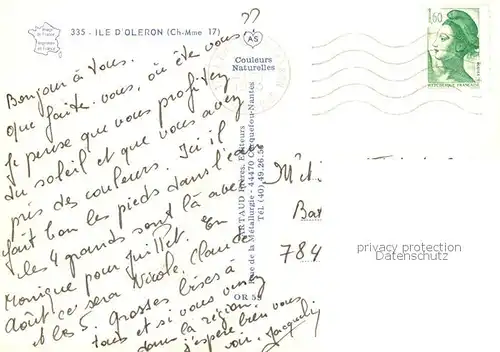 335 - ILE D'OLERON (Ch-Mme 17)
Couleurs
Naturelles
AS
1,60
REPUBLIQUE FRANCAISE
Bonjour à tous.
que faite-vous, où ête vous ??
Je pense que vous profitez
du soleil et que vous avez
pris des couleurs. Ici il
fait bon les pieds dans l'eau
les 4 grands sont là avec
Monique pour juillet. En
Août ce sera Nicole. Claude
et les 5. Grosses bises à
tous et si vous venez
dans la région.
j'espère bien vous
voir. Jacquelin
ARTAUD Frères, Editeurs
rue de la Métallurgie - 44470 Carquefou-Nantes
Tél. (40) 49.26.56
OR 53
784
privacy protection